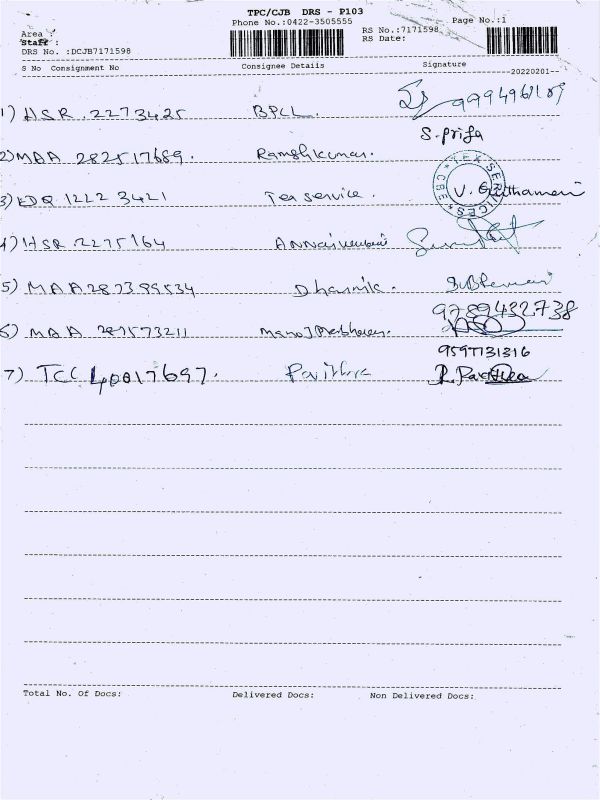 TPC/CJB DRS - P103
Phone No.:0422-3505555
Page No.:1
Area :
RS No.:7171598
Staff :
RS Date:
DRS No. :DCJB7171598
S No Consignment No Consignee Details Signature
--20220201--
1) HSR 2273425 BPCL 9994961109
S. priya
2) MAA 282517689 Rameshkumar.
TEX SERVICES CBE
3) EDQ 1222 3421 Tea service. V.
4) HSR 2275164
5) MAA 287399534
9789432738
6) MAA 287573211
9597131316
7) TCC 40817697. Pavithra
Total No. Of Docs: Delivered Docs: Non Delivered Docs: